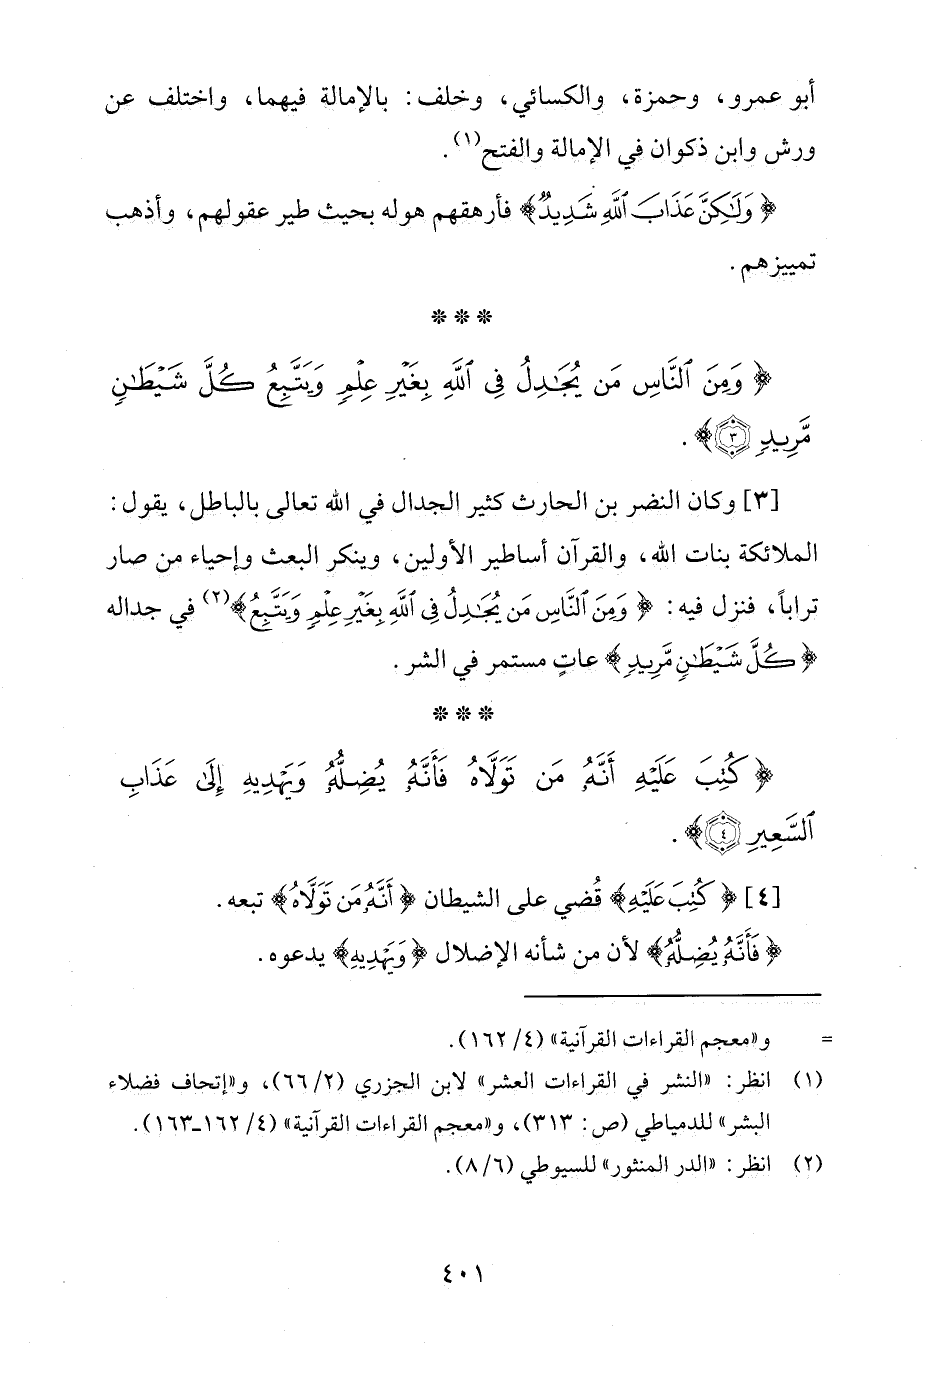 أبو عمرو، وحمزة، والكسائي، وخلف: بالإمالة فيهما، واختلف عن
ورش وابن ذكوان في الإمالة والفتح(١).
﴿وَلَٰكِنَّ عَذَابَ ٱللَّهِ شَدِيدٌ﴾ فأرهقهم هوله بحيث طير عقولهم، وأذهب
تمييزهم.
* * *
﴿وَمِنَ ٱلنَّاسِ مَن يُجَٰدِلُ فِى ٱللَّهِ بِغَيْرِ عِلْمٍ وَيَتَّبِعُ كُلَّ شَيْطَٰنٍ
مَّرِيدٍ ٣﴾.
[٣] وكان النضر بن الحارث كثير الجدال في الله تعالى بالباطل، يقول:
الملائكة بنات الله، والقرآن أساطير الأولين، وينكر البعث وإحياء من صار
تراباً، فنزل فيه: ﴿وَمِنَ ٱلنَّاسِ مَن يُجَٰدِلُ فِى ٱللَّهِ بِغَيْرِ عِلْمٍ وَيَتَّبِعُ﴾(٢) في جداله
﴿كُلَّ شَيْطَٰنٍ مَّرِيدٍ﴾ عاتٍ مستمر في الشر.
* * *
﴿كُتِبَ عَلَيْهِ أَنَّهُۥ مَن تَوَلَّاهُ فَأَنَّهُۥ يُضِلُّهُۥ وَيَهْدِيهِ إِلَىٰ عَذَابِ
ٱلسَّعِيرِ ٤﴾.
[٤] ﴿كُتِبَ عَلَيْهِ﴾ قُضي على الشيطان ﴿أَنَّهُۥ مَن تَوَلَّاهُ﴾ تبعه.
﴿فَأَنَّهُۥ يُضِلُّهُۥ﴾ لأن من شأنه الإضلال ﴿وَيَهْدِيهِ﴾ يدعوه.
= و«معجم القراءات القرآنية» (٤/ ١٦٢).
(١) انظر: «النشر في القراءات العشر» لابن الجزري (٢/ ٦٦)، و«إتحاف فضلاء
البشر» للدمياطي (ص: ٣١٣)، و«معجم القراءات القرآنية» (٤/ ١٦٢ـ١٦٣).
(٢) انظر: «الدر المنثور» للسيوطي (٦/ ٨).
٤٠١